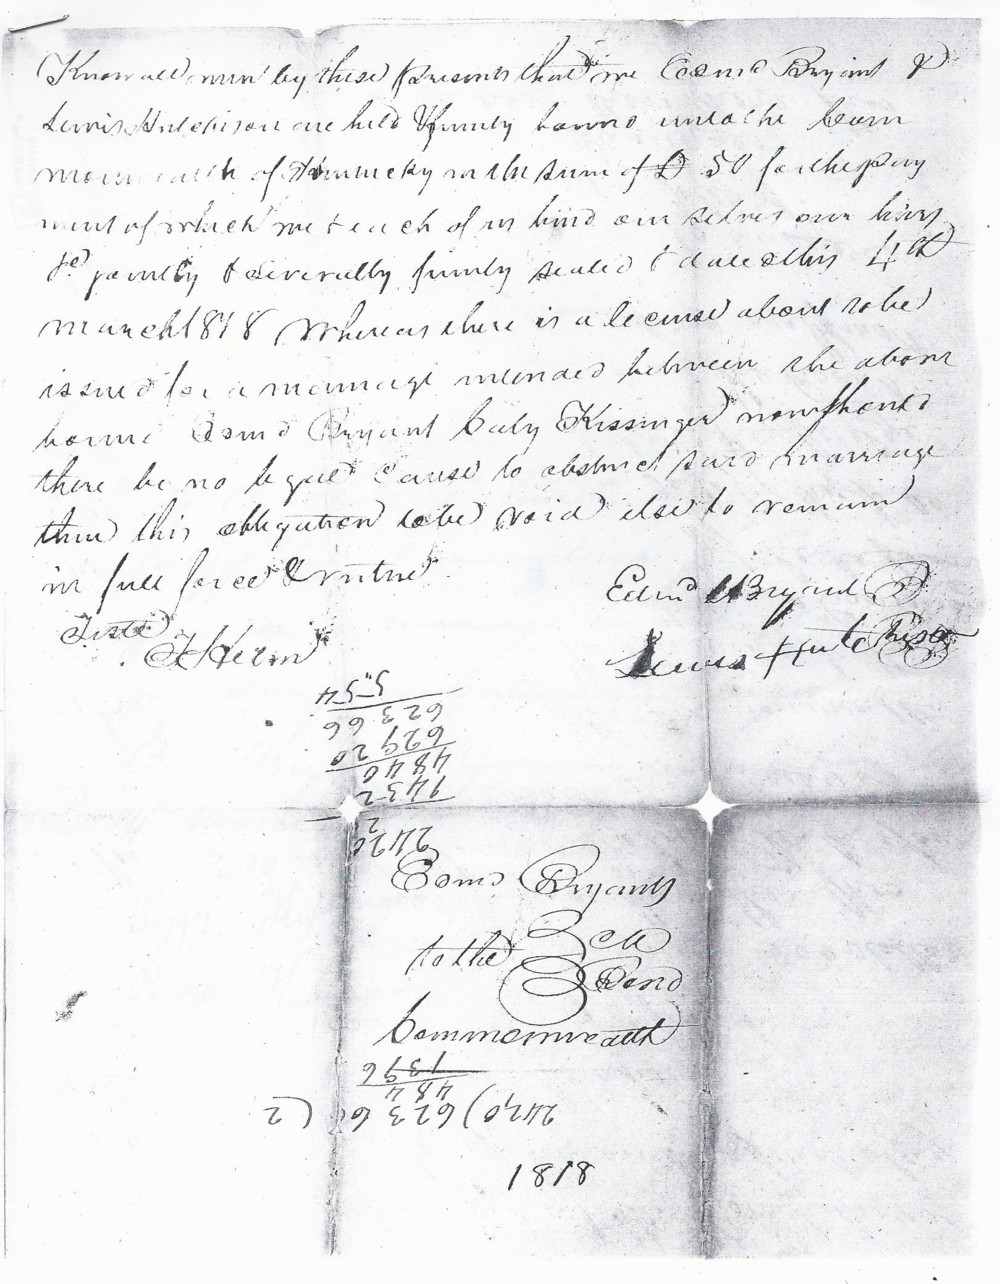 Know all men by these presents that we Edmd Bryant &
Lewis Hutchison are held & firmly bound unto the Com
monwealth of Kentucky in the sum of £ 50 for the pay
ment of which we & each of us bind ourselves our heirs
&c jointly & severally firmly sealed & dated this 4th
march 1818 Whereas there is a license about to be
issued for a marriage intended between the above
bound Edmd Bryant Caty Kissinger now should
there be no legal cause to obstruct said marriage
then this obligation to be void else to remain
in full force & virtue
Teste
Edmd Bryant
Lewis Hutchison
5"5-4
623 66
629 20
48 40
1452
2
2420
Edmd Bryants
to the Bond
Commonwealth
1396
484
2420) 6236 (2
1818